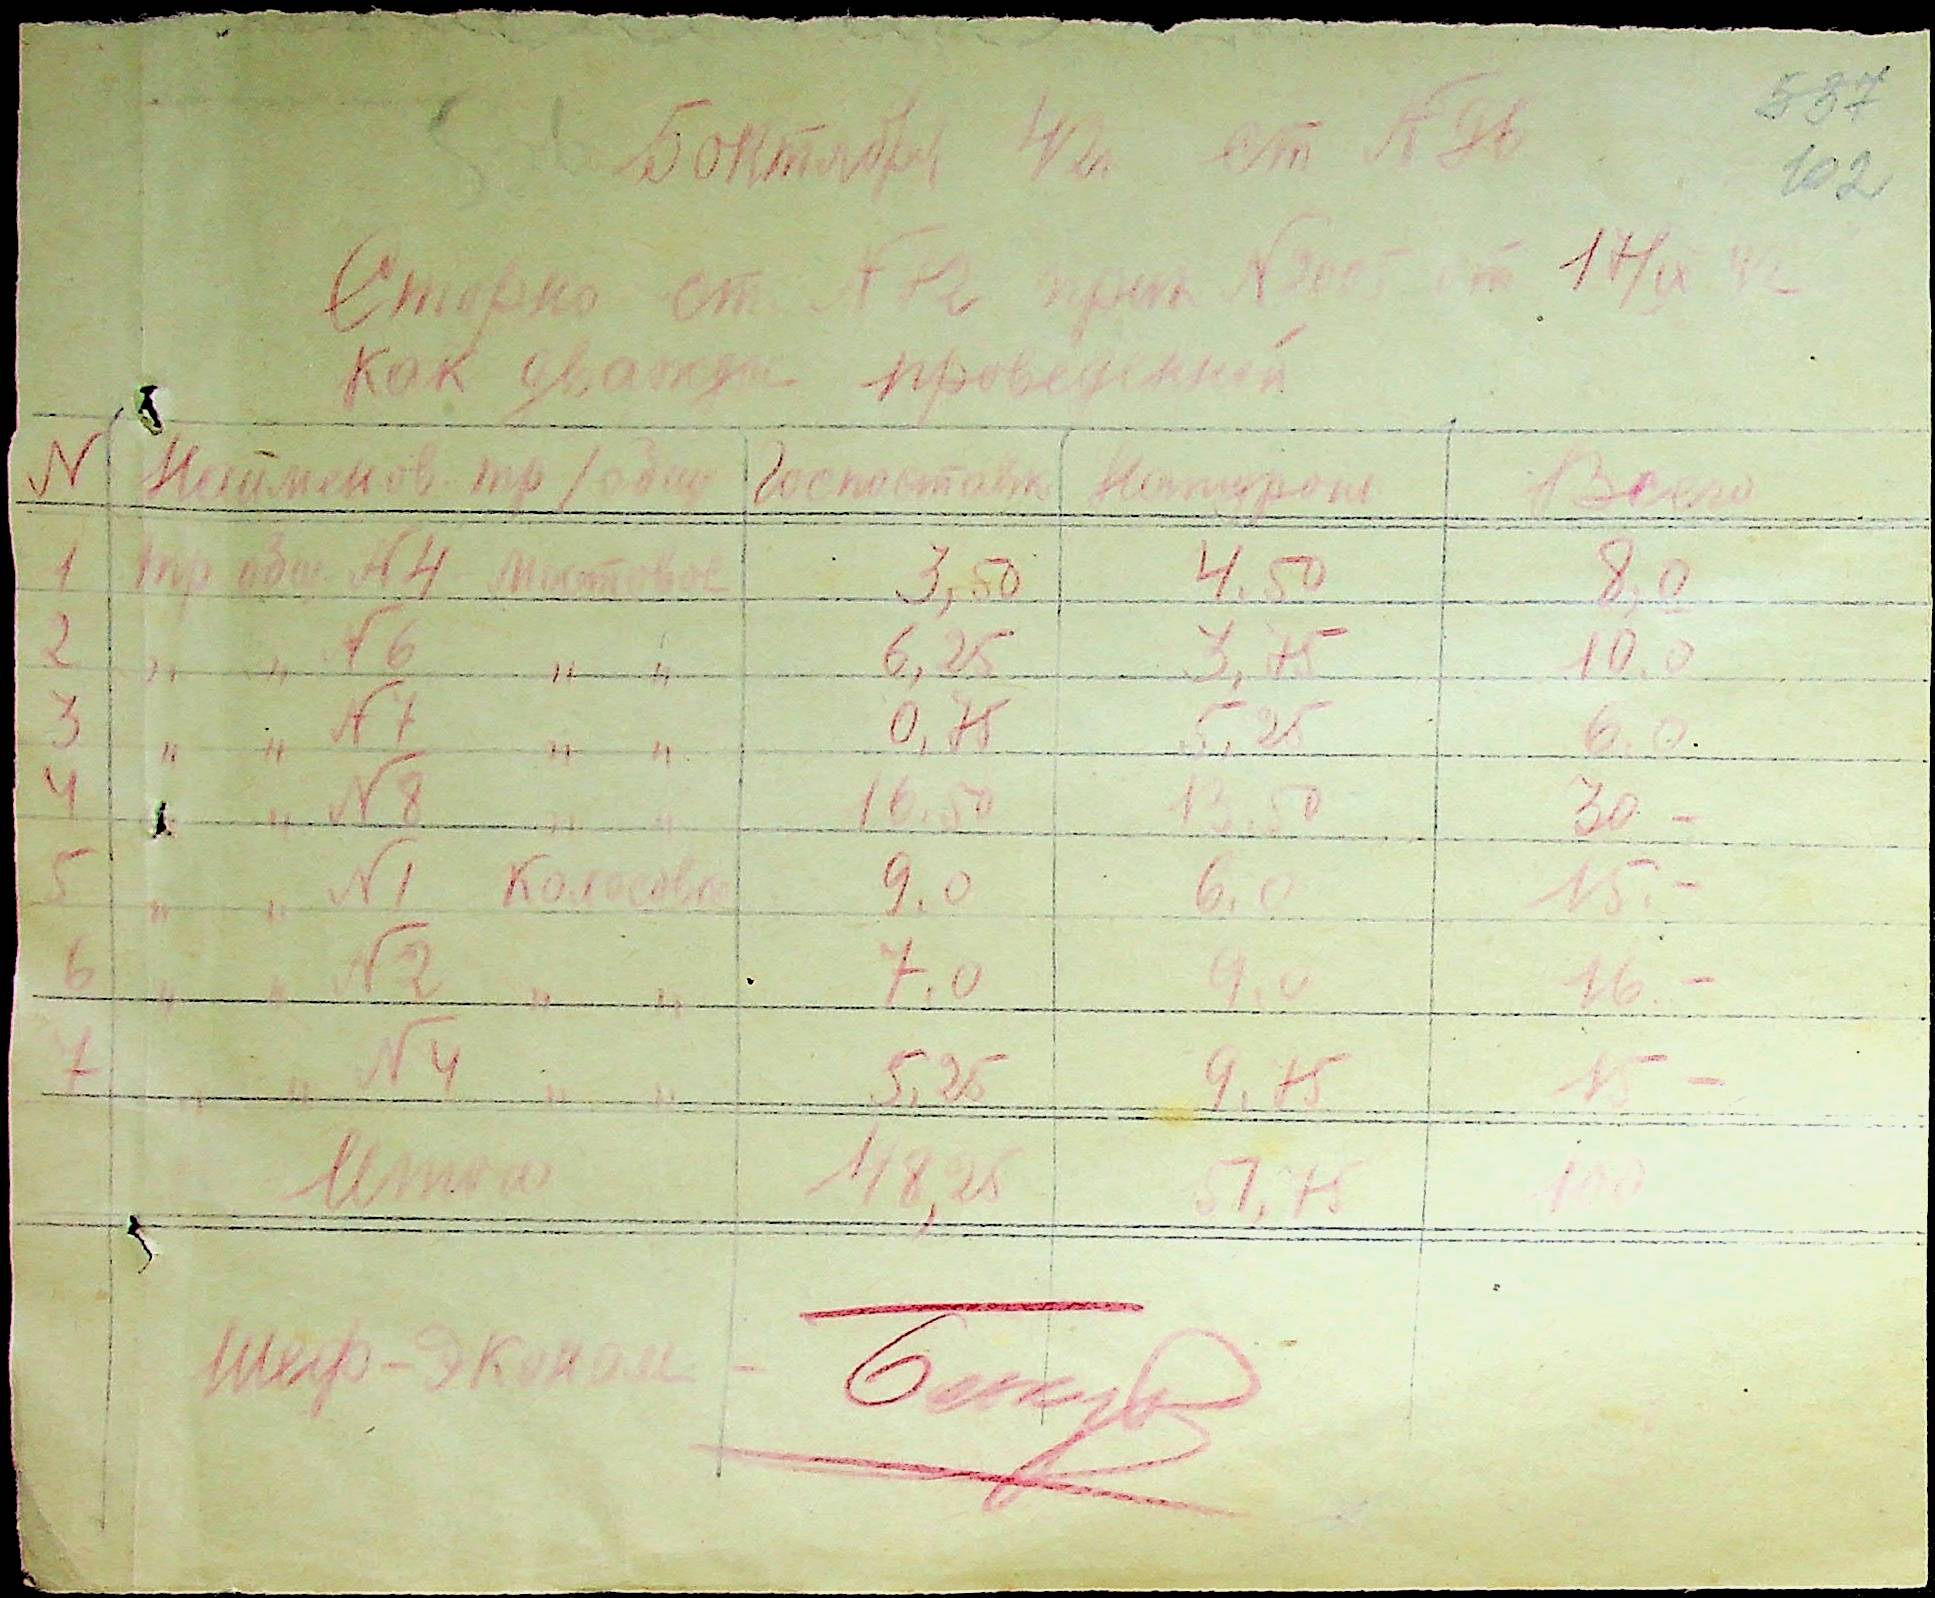 537
102
5 октября 42. ст N
Сторно ст. N 72 прик N 2005 от 17/IX 42
как дважды проведенной
N Наименов. тр/общ Госпоставк Натуропл Всего
1 тр общ. N4 Мостовое 3,50 4.50 8,0
2 " " N6 " " 6,25 3,75 10.0
3 " " N7 " " 0,75 5,25 6.0.
4 " " N8 " " 16.50 13.50 30 -
5 " " N1 Колосовка 9.0 6.0 15. -
6 " " N2 " " 7.0 9.0 16. -
7 " " N4 " " 5,25 9.75 15 -
Итого 48,25 51,75 100
Шеф-Эконом -